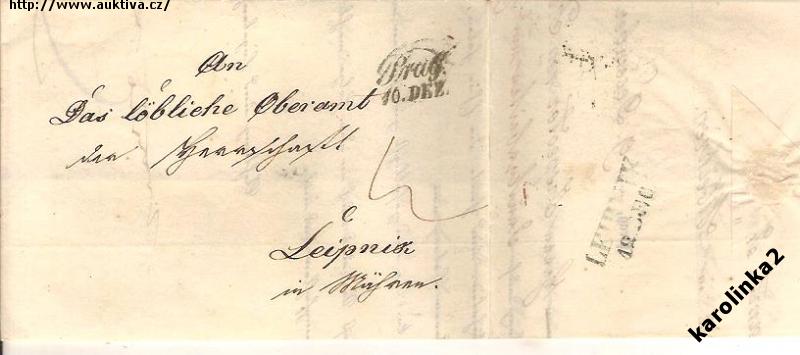 http://www.auktiva.cz/
An
Das löbliche Oberamt
der Herrschaft
Leipnik
in Mähren.
Prag.
10. DEZ.
LEIPNIK
karolinka2